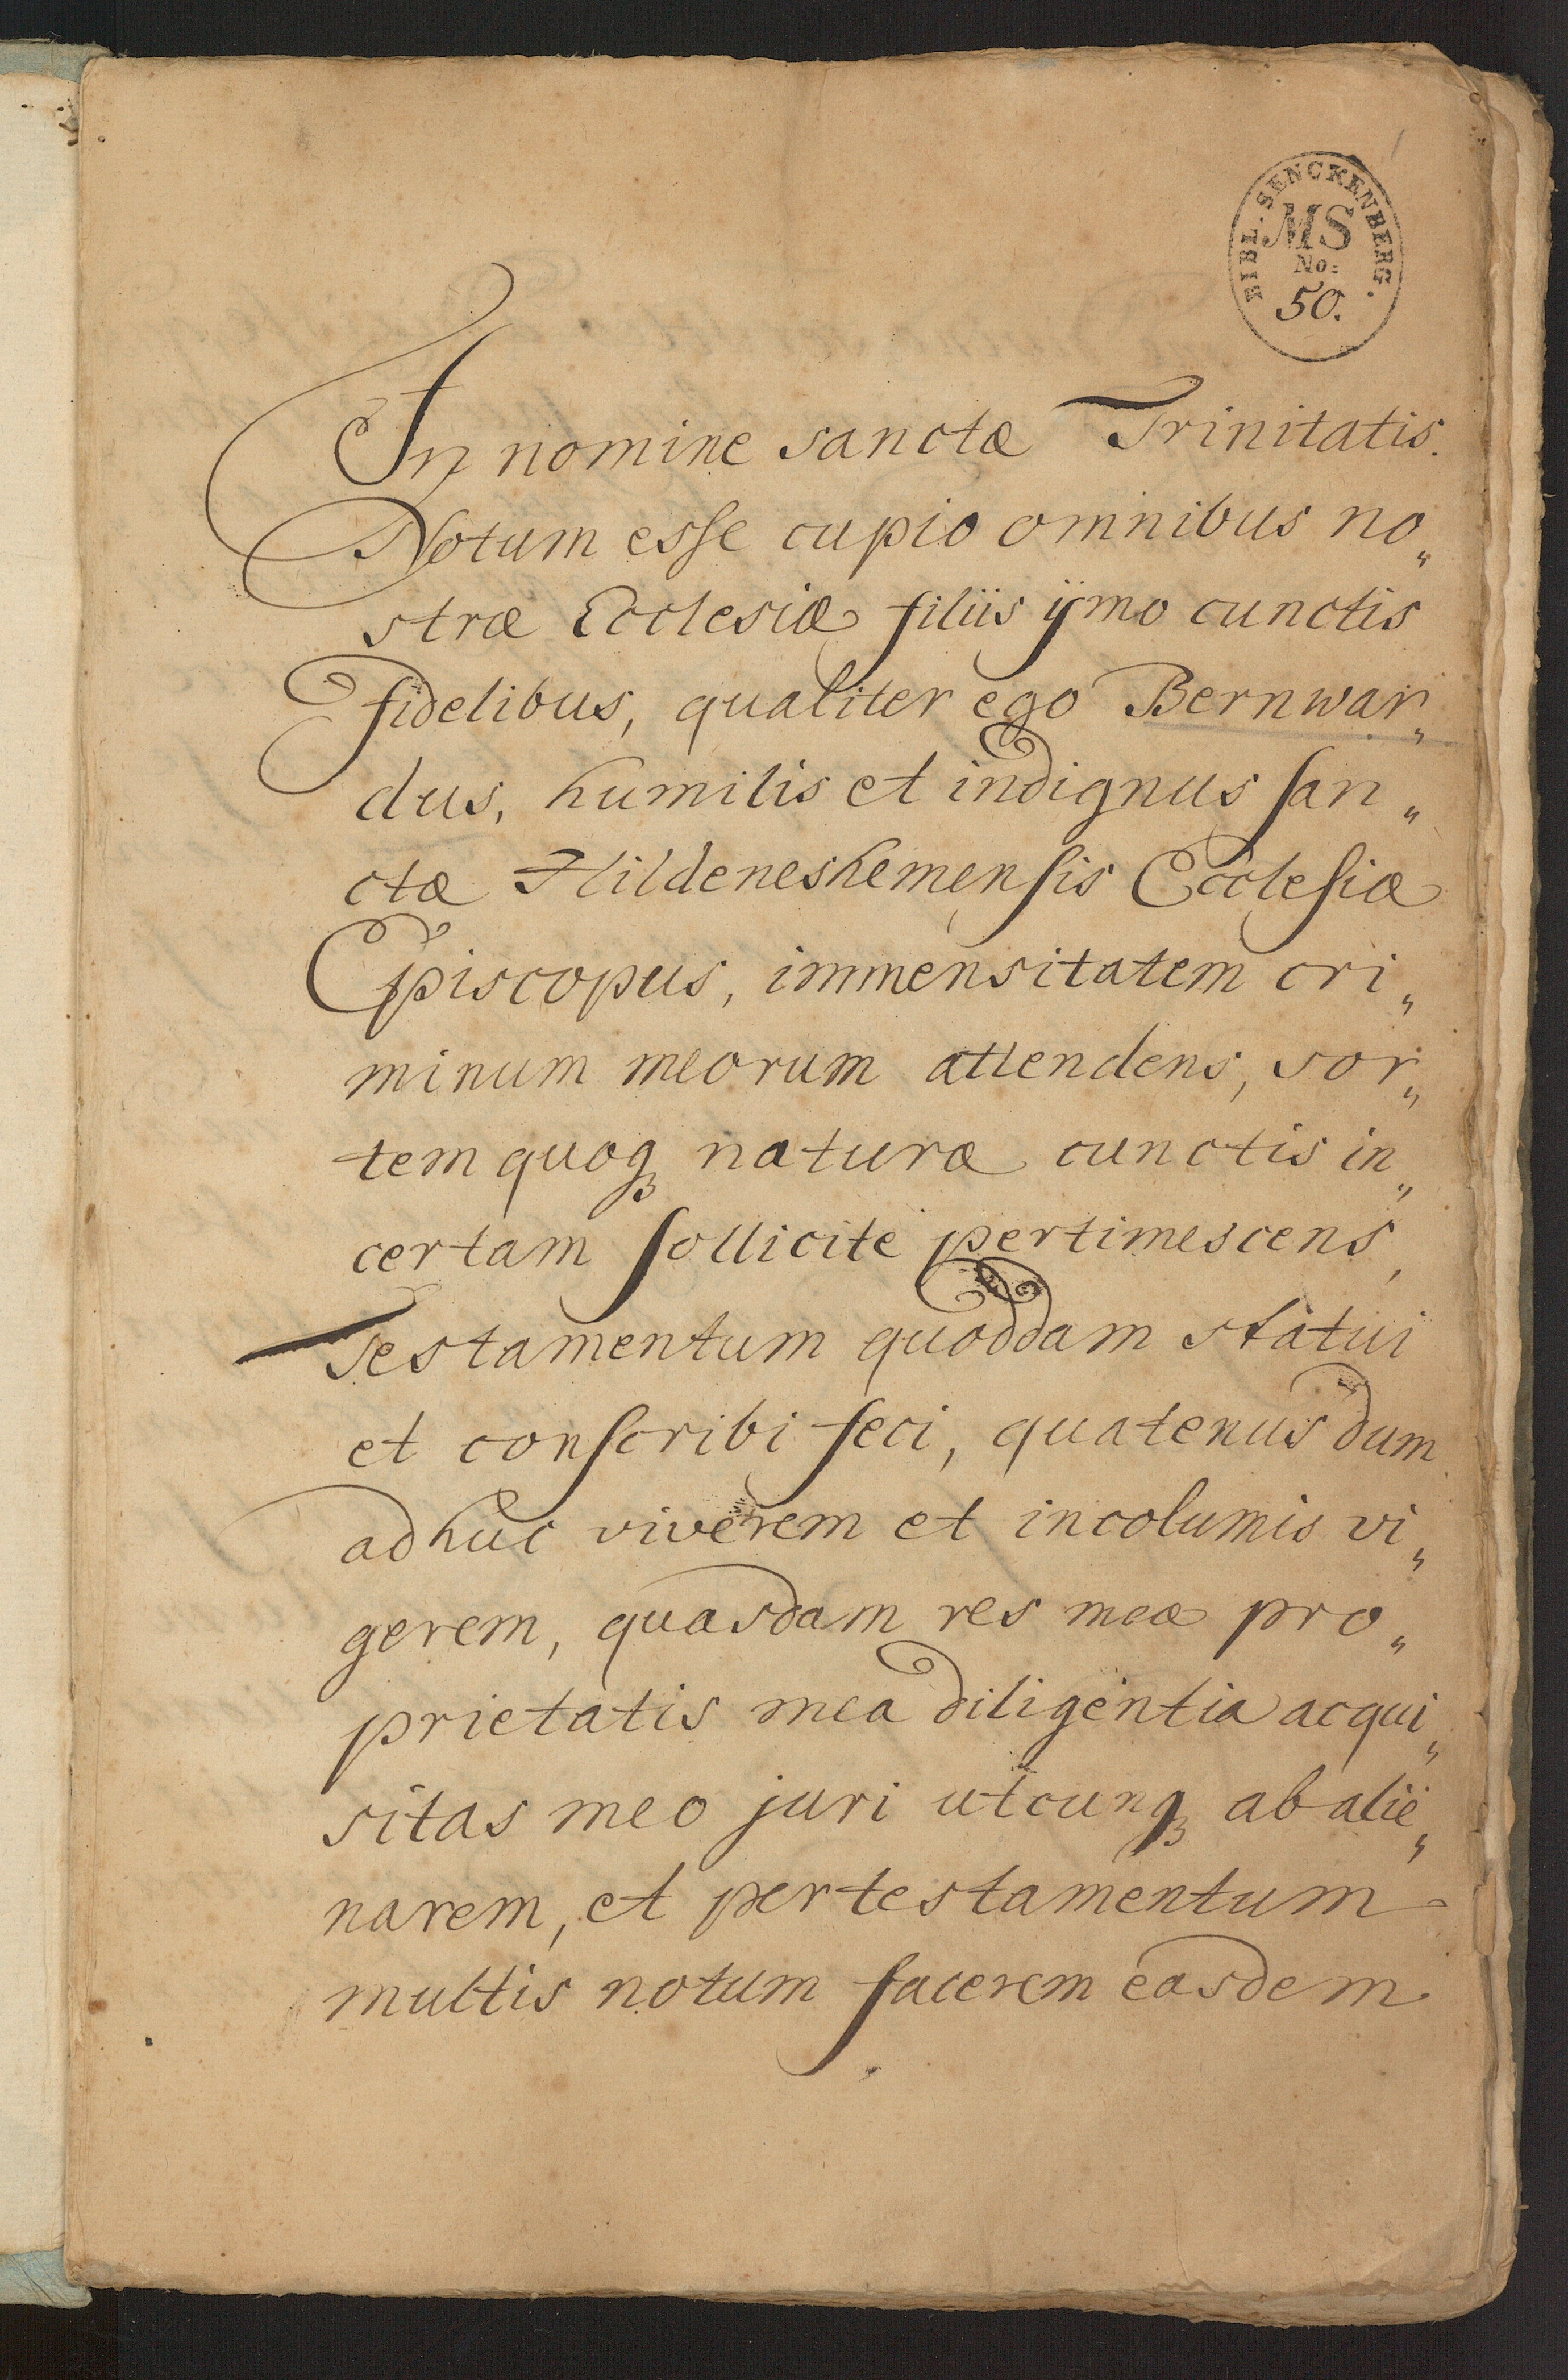 BIBL. SENCKENBERG.
MS
No:
50.
In nomine sanctæ Trinitatis.
Notum esse cupio omnibus no„
stræ Ecclesiæ filiis ijmo cunctis
fidelibus, qualiter ego Bernwar„
dus, humilis et indignus san„
ctæ Hildeneshemensis Ecclesiæ
Episcopus, immensitatem cri„
minum meorum attendens, sor„
tem quoqꝫ naturæ cunctis in„
certam sollicite pertimescens,
Testamentum quoddam statui
et conscribi feci, quatenus dum
adhuc viverem et incolumis vi„
gerem, quasdam res meæ pro„
prietatis mea diligentia acqui„
sitas meo juri utcunqꝫ ab alie„
narem, et per testamentum
multis notum facerem easdem